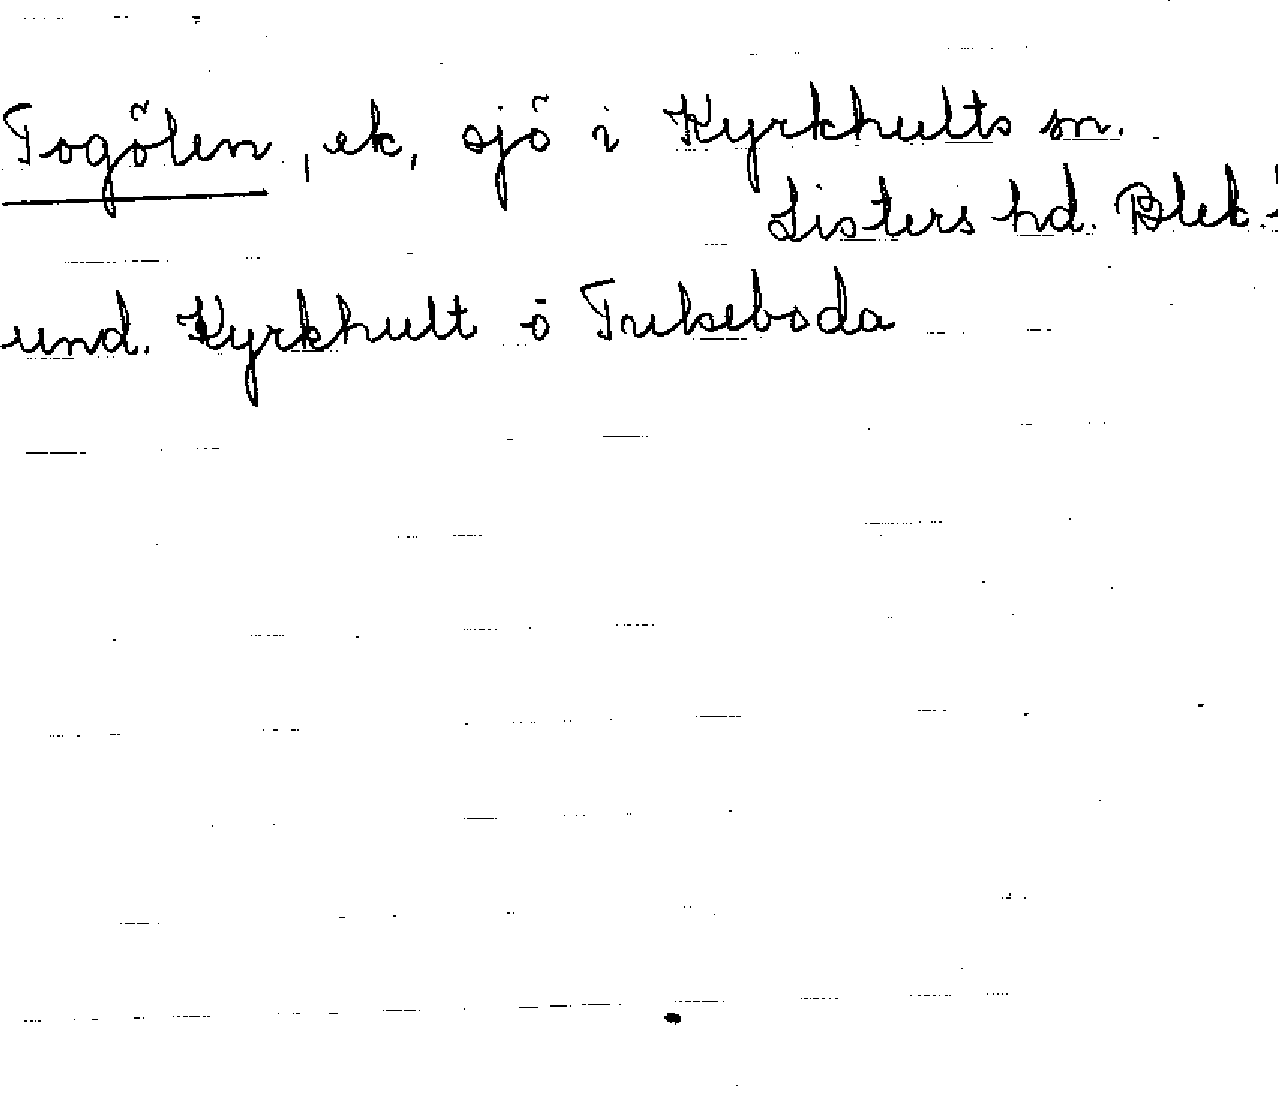 Togölen, ek, sjö i Kyrkhults sn.
Listers hd. Blek.
und. Kyrkhult o